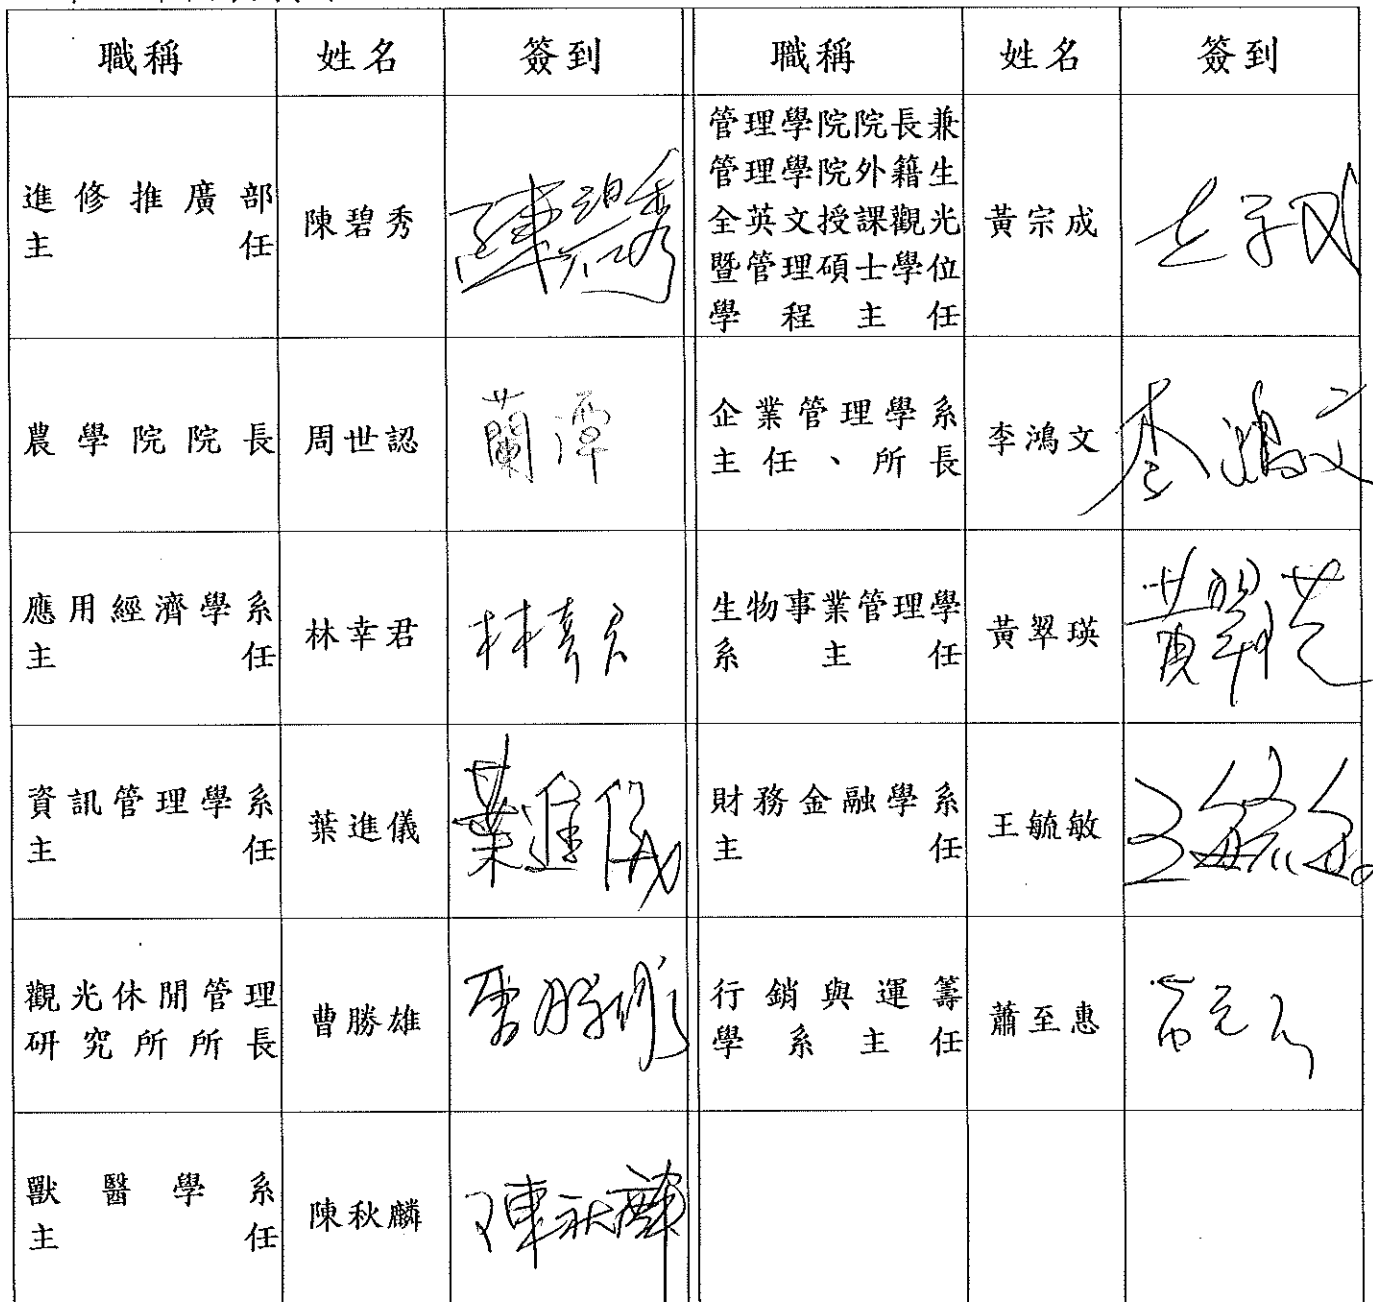 職稱 姓名 簽到 職稱 姓名 簽到
進修推廣部
主任
陳碧秀
陳碧秀
管理學院院長兼
管理學院外籍生
全英文授課觀光
暨管理碩士學位
學程主任
黃宗成
農學院院長
周世認
蘭潭
企業管理學系
主任、所長
李鴻文
李鴻文
應用經濟學系
主任
林幸君
林幸君
生物事業管理學
系主任
黃翠瑛
黃翠瑛
資訊管理學系
主任
葉進儀
葉進儀
財務金融學系
主任
王毓敏
王毓敏
觀光休閒管理
研究所所長
曹勝雄
曹勝雄
行銷與運籌
學系主任
蕭至惠
獸醫學系
主任
陳秋麟
陳秋麟